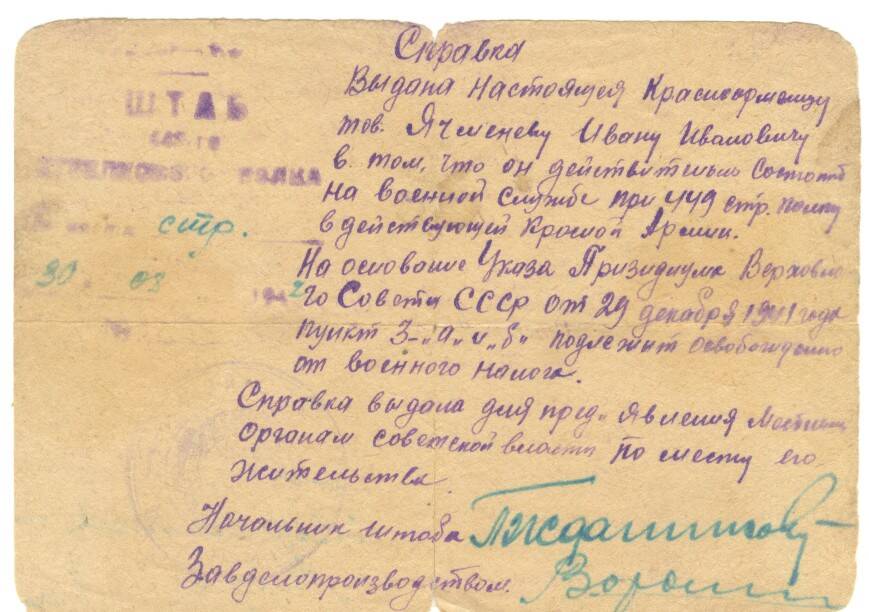 ШТАБ
449-го
СТРЕЛКОВОГО ПОЛКА
стр.
30 03 1942
Справка
Выдана настоящея Красноармейцу
тов. Ячменеву Ивану Ивановичу
в том, что он действительно состоит
на военной службе при 449 стр. полку
в действующей Красной Армии.
На основание Указа Призидиума Верховно
го Совета СССР от 29 декабря 1941 года
пункт 3-„а„ и „б" подлежит освобождению
от военного налога.
Справка выдана для пред„явления Местным
органам советской власти по месту его
жительства.
Начальник штаба
Завделопроизводством.